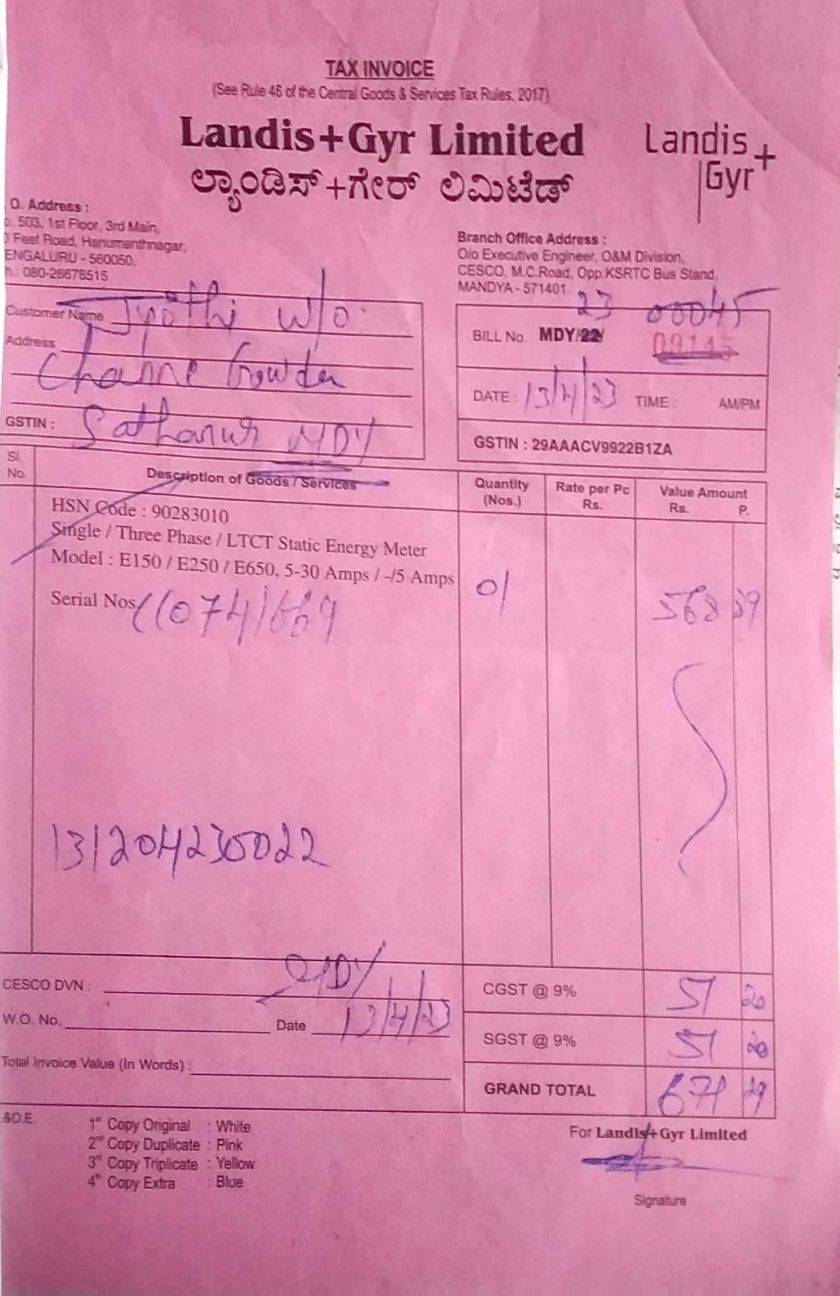 TAX INVOICE
(See Rule 46 of the Central Goods & Services Tax Rules, 2017)
Landis+Gyr Limited
Landis+
Gyr
ಲ್ಯಾಂಡಿಸ್+ಗೇರ್ ಲಿಮಿಟೆಡ್
O. Address :
503, 1st Floor, 3rd Main,
Feet Road, Hanumanthnagar,
ENGALURU - 560050.
080-26678515
Branch Office Address :
O/o Executive Engineer, O&M Division,
CESCO, M.C.Road, Opp.KSRTC Bus Stand,
MANDYA - 571401.
Customer Name Jyothi w/o
Address Channe Gowda
GSTIN : Sathanur MDY
23 00045
BILL No. MDY/22/ 09145
DATE : 13/4/23 TIME : AM/PM
GSTIN : 29AAACV9922B1ZA
Sl. No. Description of Goods / Services Quantity (Nos.) Rate per Pc Rs. Value Amount Rs. P.
HSN Code : 90283010
Single / Three Phase / LTCT Static Energy Meter
Model : E150 / E250 / E650, 5-30 Amps / -/5 Amps 01
Serial Nos 568
131204230022
CESCO DVN : MDY
W.O. No. Date 13/4/23
Total Invoice Value (In Words) :
CGST @ 9% 51 20
SGST @ 9% 51 20
GRAND TOTAL 671
&O.E.
1st Copy Original : White
2nd Copy Duplicate : Pink
3rd Copy Triplicate : Yellow
4th Copy Extra : Blue
For Landis+Gyr Limited
Signature